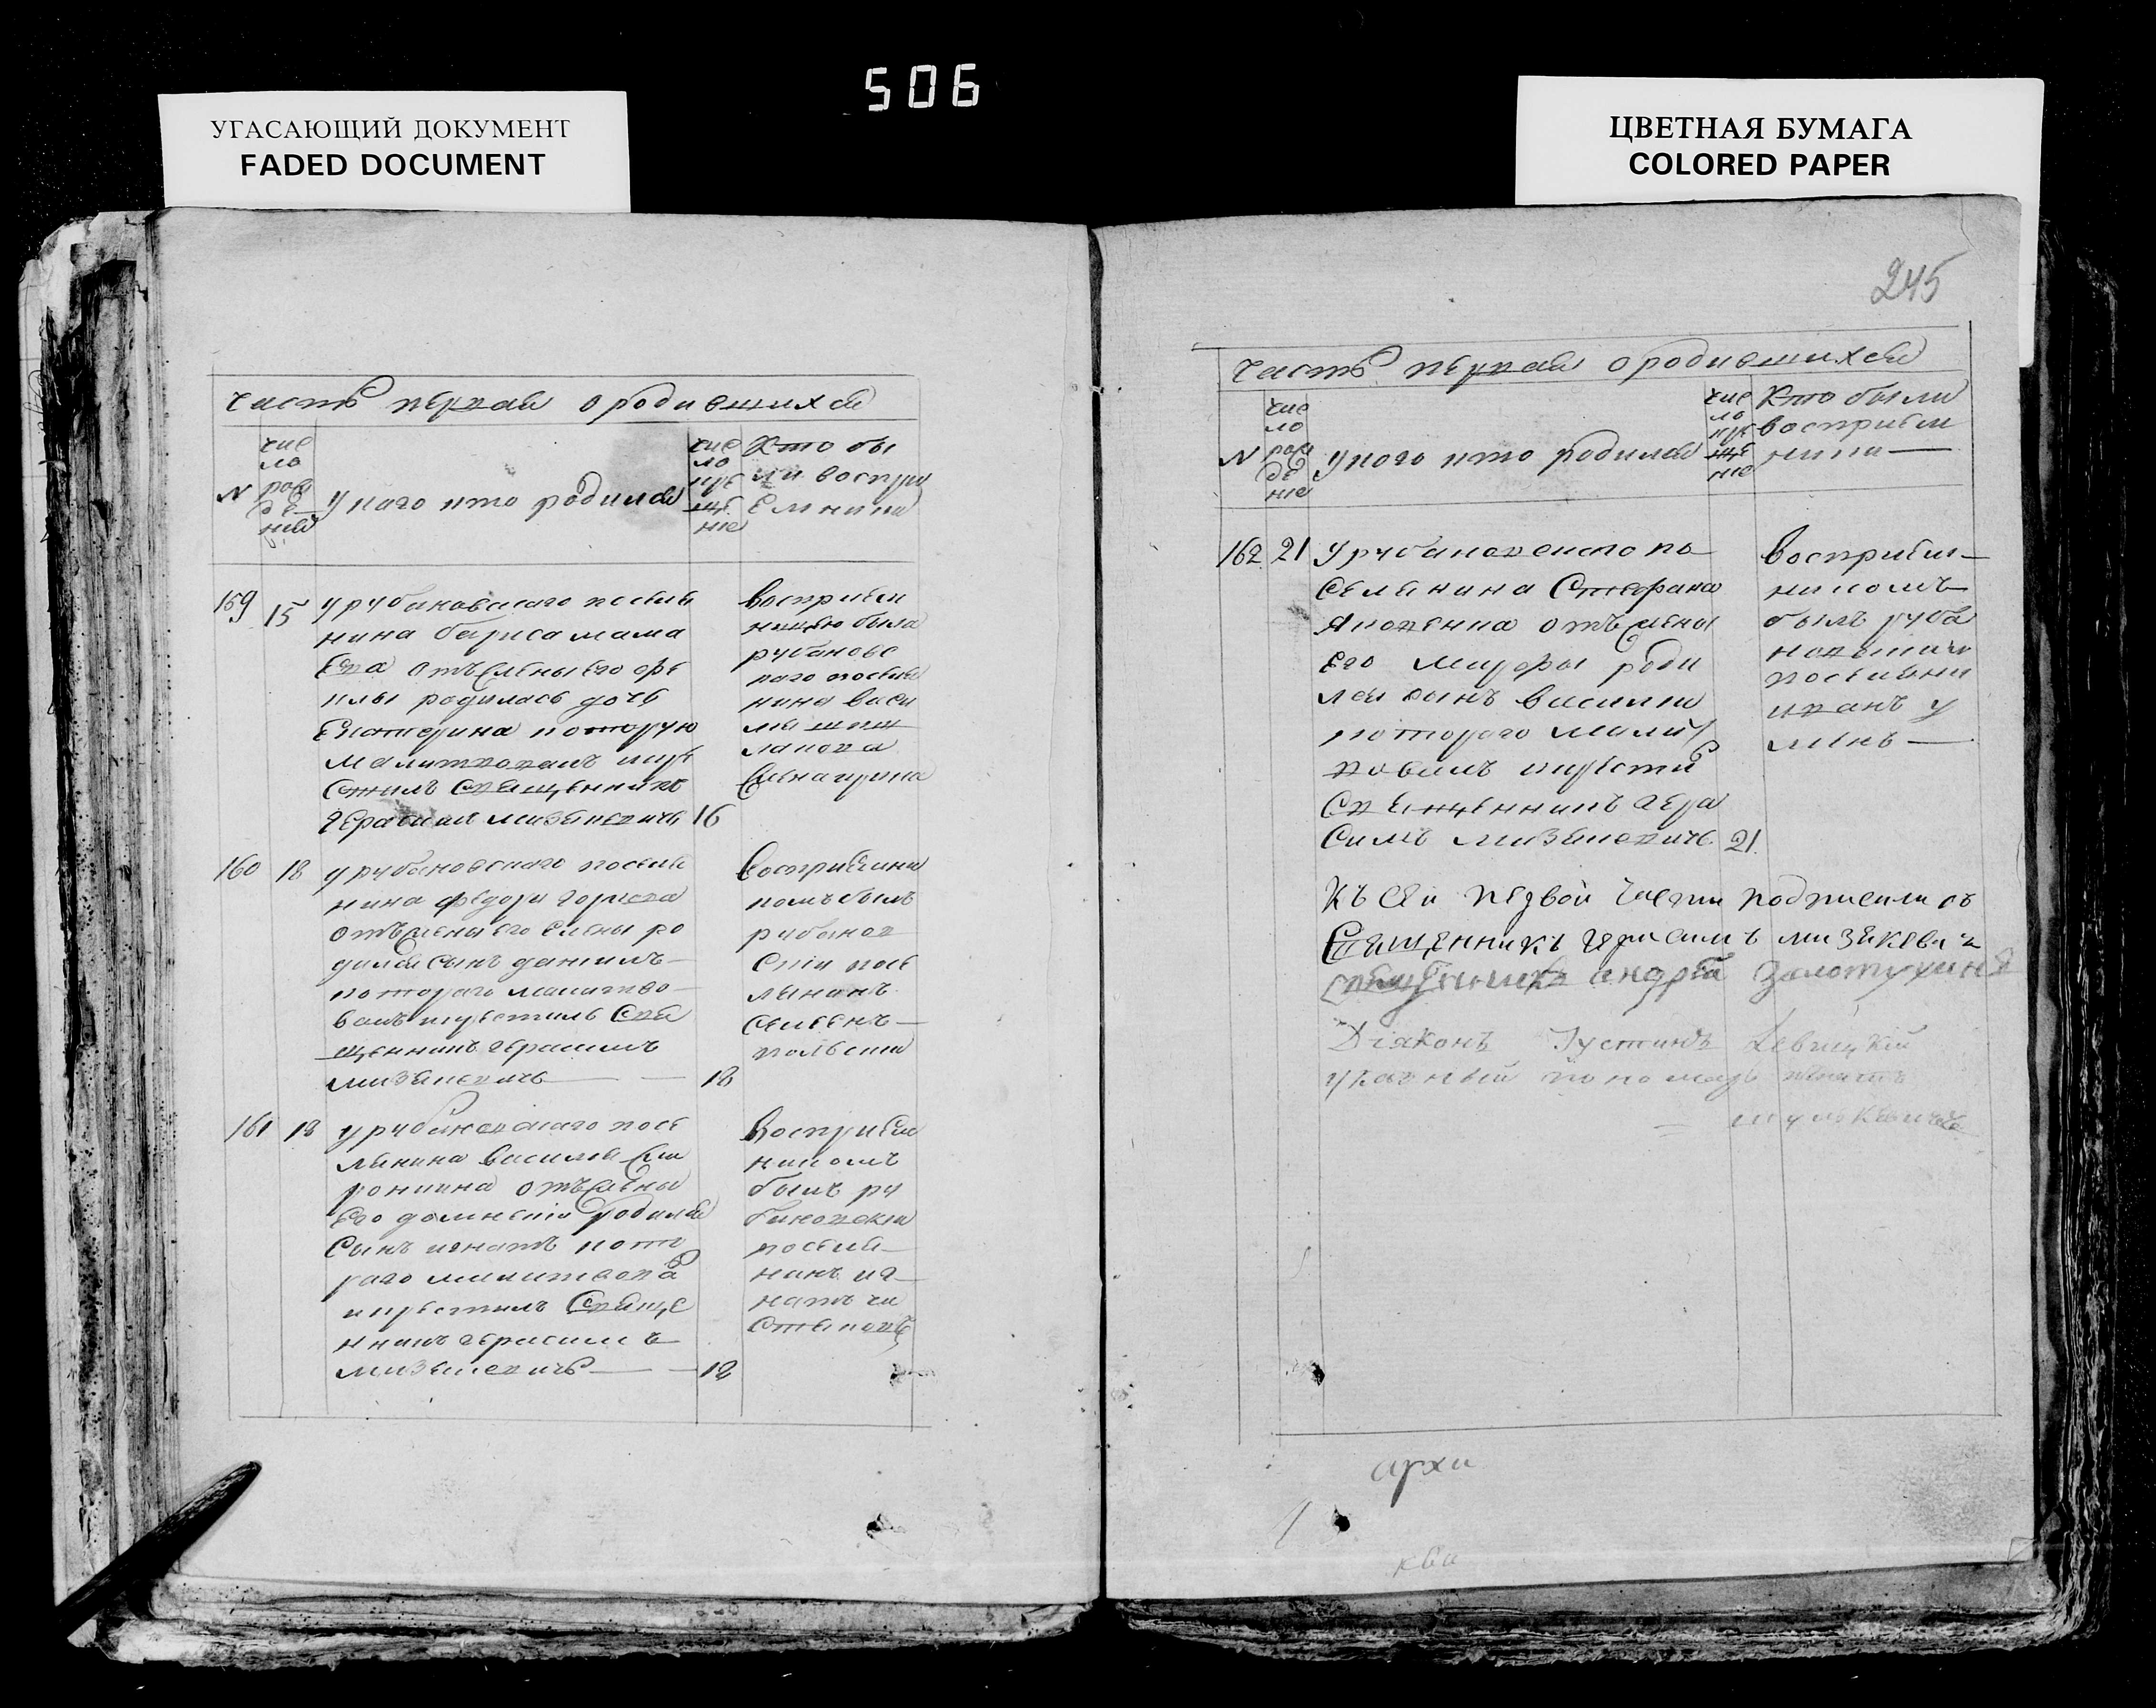 506
УГАСАЮЩИЙ ДОКУМЕНТ
FADED DOCUMENT
ЦВЕТНАЯ БУМАГА
COLORED PAPER
часть первая о родившихся
N
число рождения
у кого кто родился
число крещение
Кто были восприемники
159 15
у рубановского поселя
нина бориса мама
ева отъ жены его
родилась дочь
Екатерина которую
малитвовалъ кре
стилъ священникъ
герасимъ мизякевичъ 16
восприем
ницею была
рубановс
каго поселя
нина васи
жена ирина
160 18
у рубановского поселя
нина федора
отъ жены его елены ро
дился сынъ данилъ
котораго малитво
валъ крестилъ свя
щенникъ герасимъ
мизякевичъ 18
восприемни
комъ былъ
рубанов
ский посе
лянинъ
семенъ
польский
161 18
у рубановского посе
лянина василия
отъ жены
его домникии родился
сынъ игнатъ кото
раго малитвова
крестилъ свяще
нникъ герасимъ
мизякевичъ 18
восприем
никомъ
былъ ру
бановски
поселя
нинъ иг
натъ
245
часть первая о родившихся
N
число рождение
у кого кто родился
число крещение
Кто были
восприем
ники
162 21
у рубановского по
селянина Стефана
Яковенка отъ жены
его роди
лся сынъ василии
котораго малит
вовалъ крестил
священникъ гера
симъ мизякевичъ 21
восприем
никомъ
былъ руба
новьски
поселяни
иванъ
Къ сей первой части подписались
Священникъ герасимъ мизякевичъ
священникъ андрей Золотухинъ
Діяконъ Іустинъ Левицкій
указный пономарь игнатъ
архи